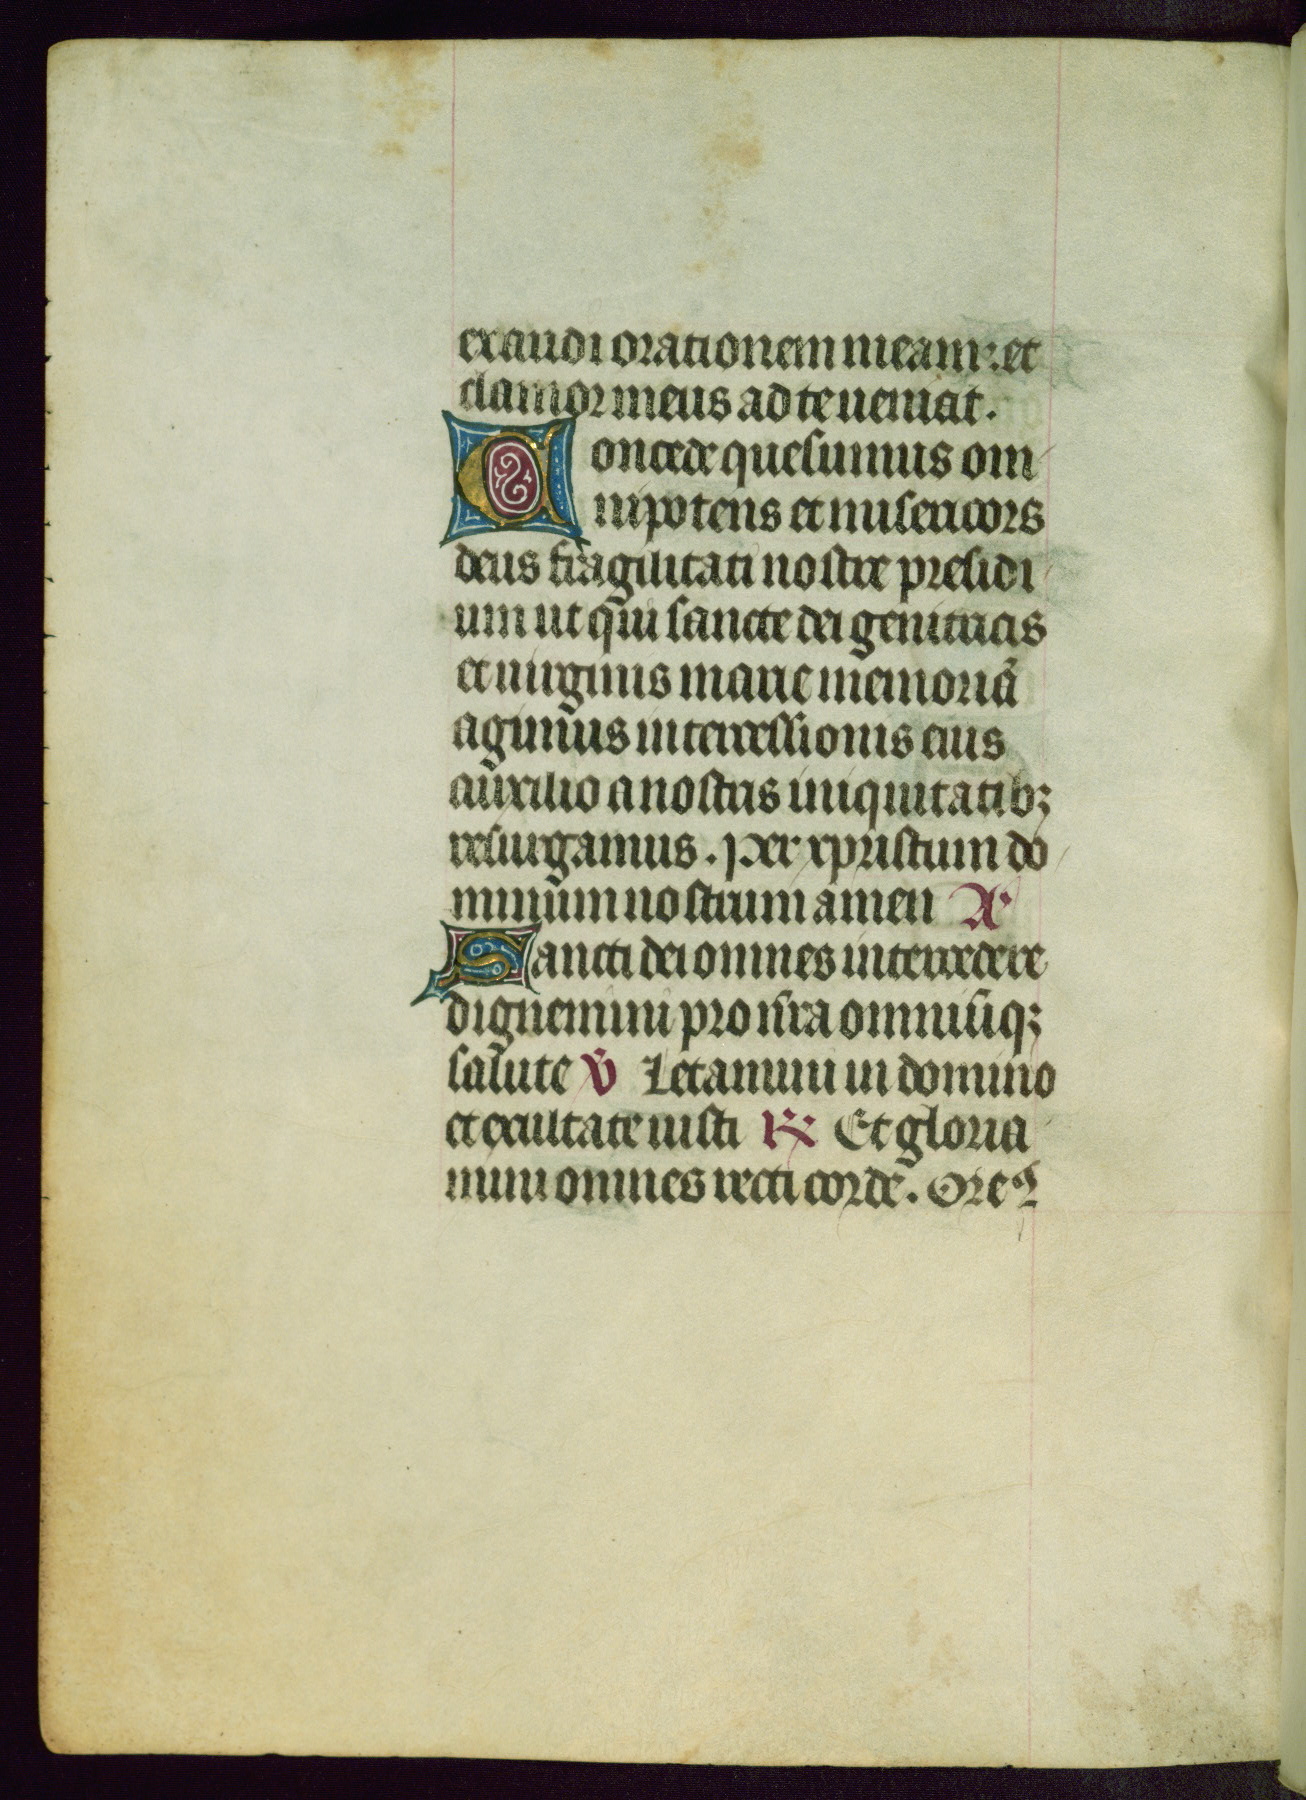 exaudi orationem meam: et
clamor meus ad te ueniat.
Concede quesumus om
nipotens et misericors
deus fragilitati nostre presidi
um ut qui sancte dei genitricis
et uirginis marie memoriā
agimus intercessionis eius
auxilio a nostris iniquitatibꝫ
resurgamus. Per xpristum do
minum nostrum amen A
Sancti dei omnes intercedere
dignemini pro nr̄a omniuqꝫ
salute v̄ Letamini in domino
et exultate iusti ℟ Et gloria
mini omnes recti corde. Oreꝰ